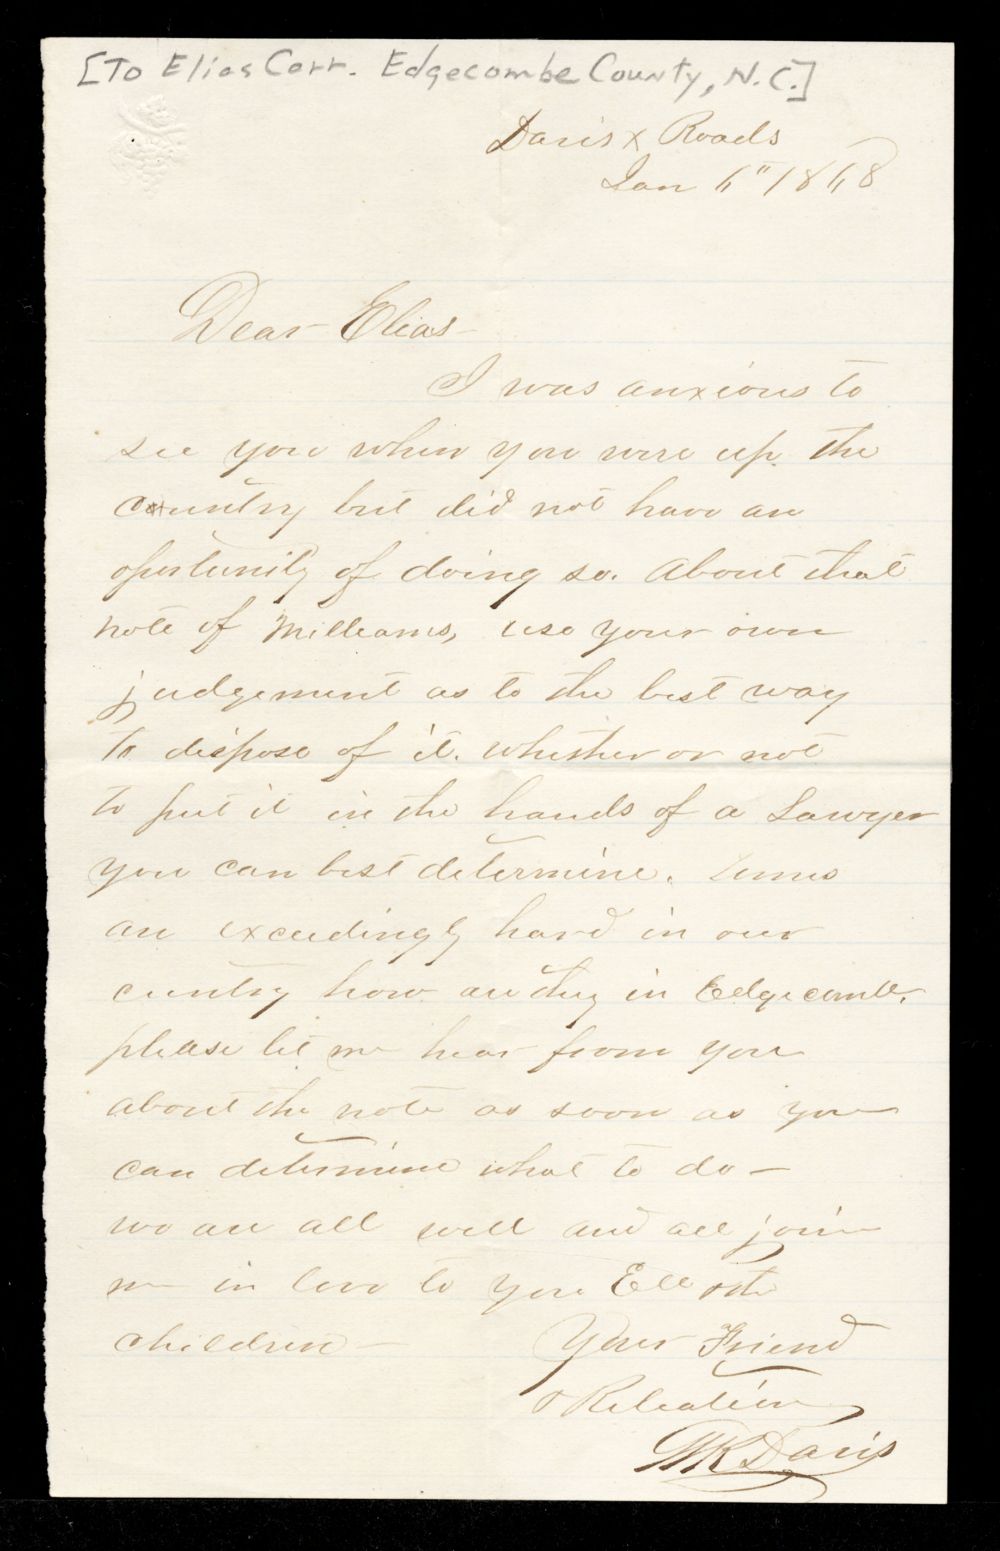 [To Elias Carr. Edgecombe County, N.C.]
Davis X Roads
Jan 6" 1868
Dear Elias
I was anxious to
see you when you were up the
country but did not have an
oportunity of doing so. About that
note of Williams, use your own
judgement as to the best way
to dispose of it. whether or not
to put it in the hands of a Lawyer
you can best determine. Times
are exceedingly hard in our
cuntry how are they in Edgecombe.
please let me hear from you
about the note as soon as you
can determine what to do –
we are all well and all join
me in love to you Ell & the
children –
Your Friend
& Relation
WK Davis